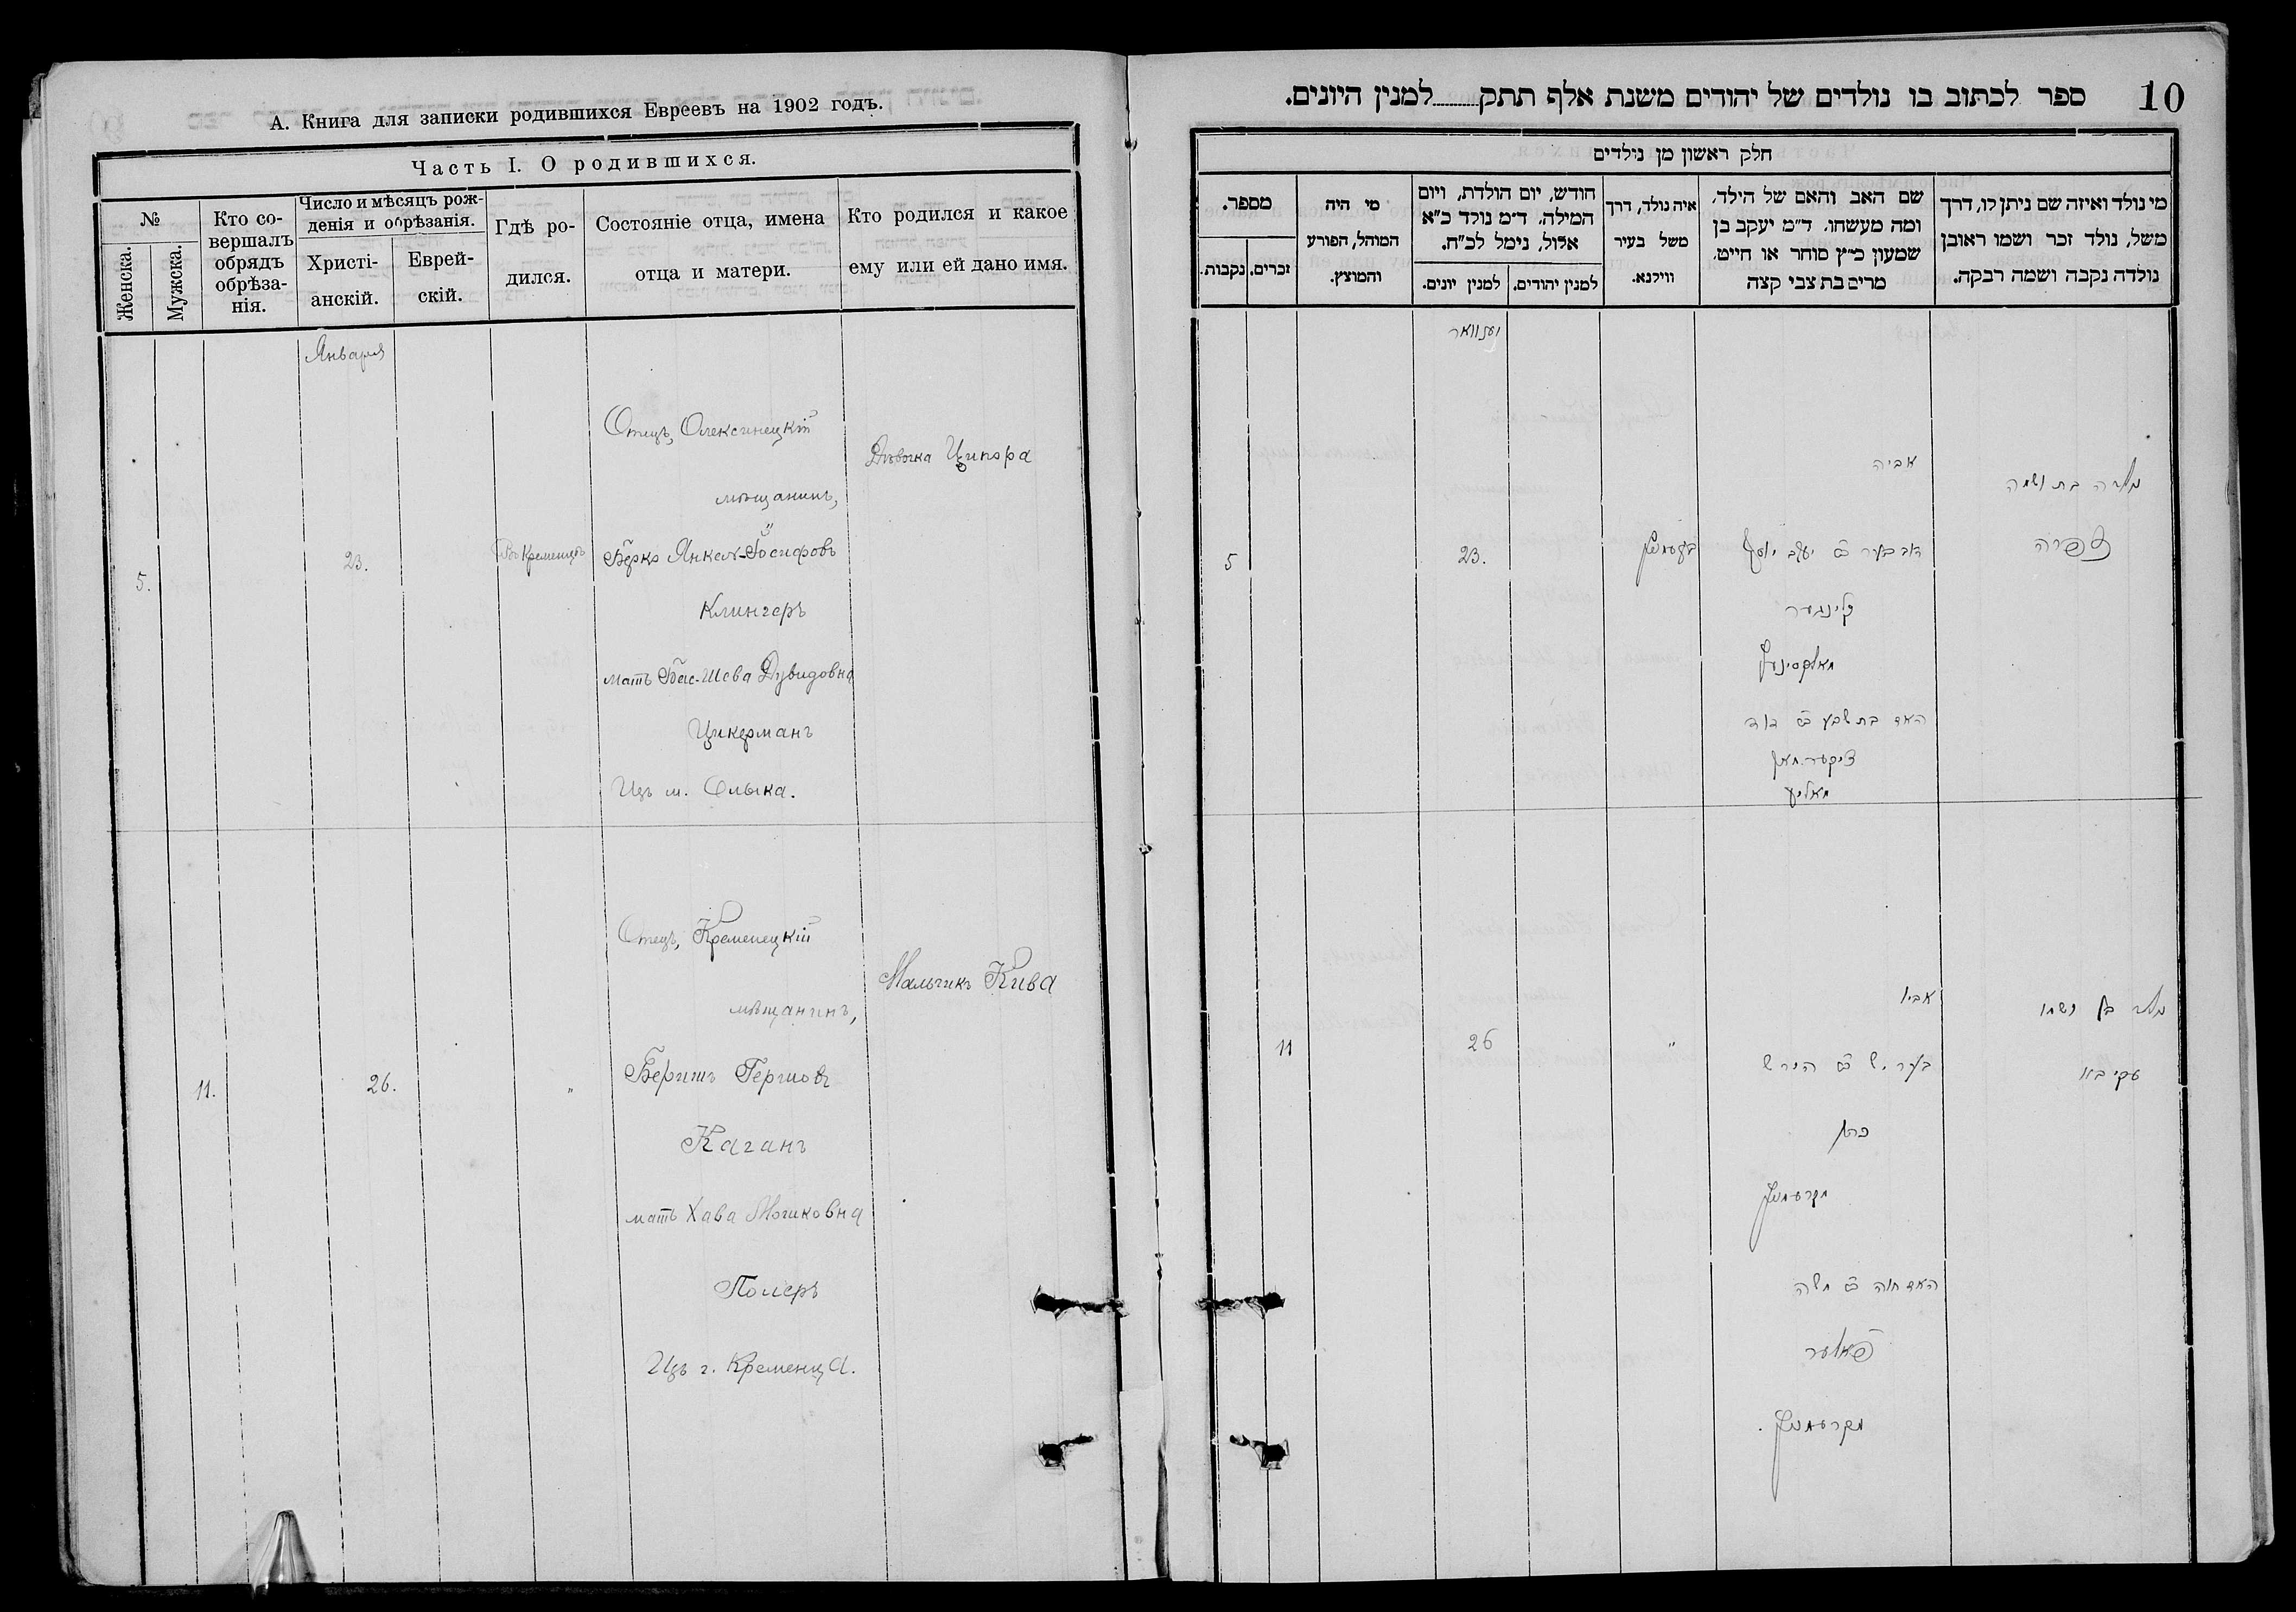 А. Книга для записки родившихся Евреевъ на 1902 годъ.
Часть I. О родившихся.
№
Женска.
Мужска.
Кто со-
вершалъ
обрядъ
обрѣза-
нія.
Число и мѣсяцъ рож-
денія и обрѣзанія.
Христі-
анскій.
Еврей-
скій.
Гдѣ ро-
дился.
Состояніе отца, имена
отца и матери.
Кто родился и какое
ему или ей дано имя.
Января
5.
23.
Въ Кременцѣ
Отецъ, Олексинецкій
мѣщанинъ,
Берко Янкел-Іосифовъ
Клингеръ
мать Бас-Шева Дувидовна
Цикерманъ
Изъ м. Олыка.
Дѣвочка Ципора
11.
26.
"
Отецъ, Кременецкій
мѣщанинъ,
Беришъ Гершовъ
Каганъ
мать Хава Мошковна
Полеръ
Изъ г. Кременца.
Мальчикъ Кива
10
ספר לכתוב בו נולדים של יהודים משנת אלף תתק........למנין היונים.
חלק ראשון מן נולדים
מי נולד ואיזה שם ניתן לו, דרך
משל, נולד זכר ושמו ראובן
נולדה נקבה ושמה רבקה.
שם האב והאם של הילד,
ומה מעשהו. ד"מ יעקב בן
שמעון כ"ץ סוחר או חייט.
מרים בת צבי קצה
איה נולד, דרך
משל בעיר
ווילנא.
חודש, יום הולדת, ויום
המילה, ד"מ נולד כ"א
אלול, נימל לכ"ח.
למנין יהודים.
למנין יונים.
מי היה
המוהל, הפורע
והמוצץ.
מספר.
זכרים.
נקבות.
יענוואר
נולדה בת ושמה
צפורה
אביה
דוב בער ב״ר יעקב יוסף
קלינגער
מאלקסינעץ
האם בת שבע ב״ר דוד
ציקערמאן
מאליק
23.
5
נולד בן ושמו
עקיבא
אביו
בעריש ב״ר הירש
כהן
מקרעמניץ
האם חוה ב״ר משה
פאלער
מקרעמניץ.
"
26
11